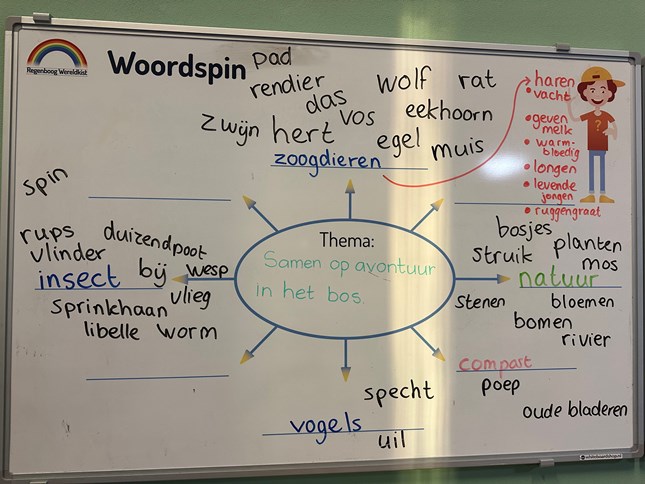 Regenboog Wereldkist
Woordspin
pad
rendier
wolf
rat
das
vos
eekhoorn
zwijn
hert
egel
muis
zoogdieren
haren
• vacht
• geven
melk
• warm-
bloedig
• longen
• levende
jongen
• ruggengraat
?
spin
rups
duizendpoot
vlinder
bij
wesp
insect
vlieg
sprinkhaan
libelle
worm
Thema:
Samen op avontuur
in het bos.
bosjes
struik
planten
mos
natuur
stenen
bloemen
bomen
rivier
compost
poep
oude bladeren
specht
vogels
uil